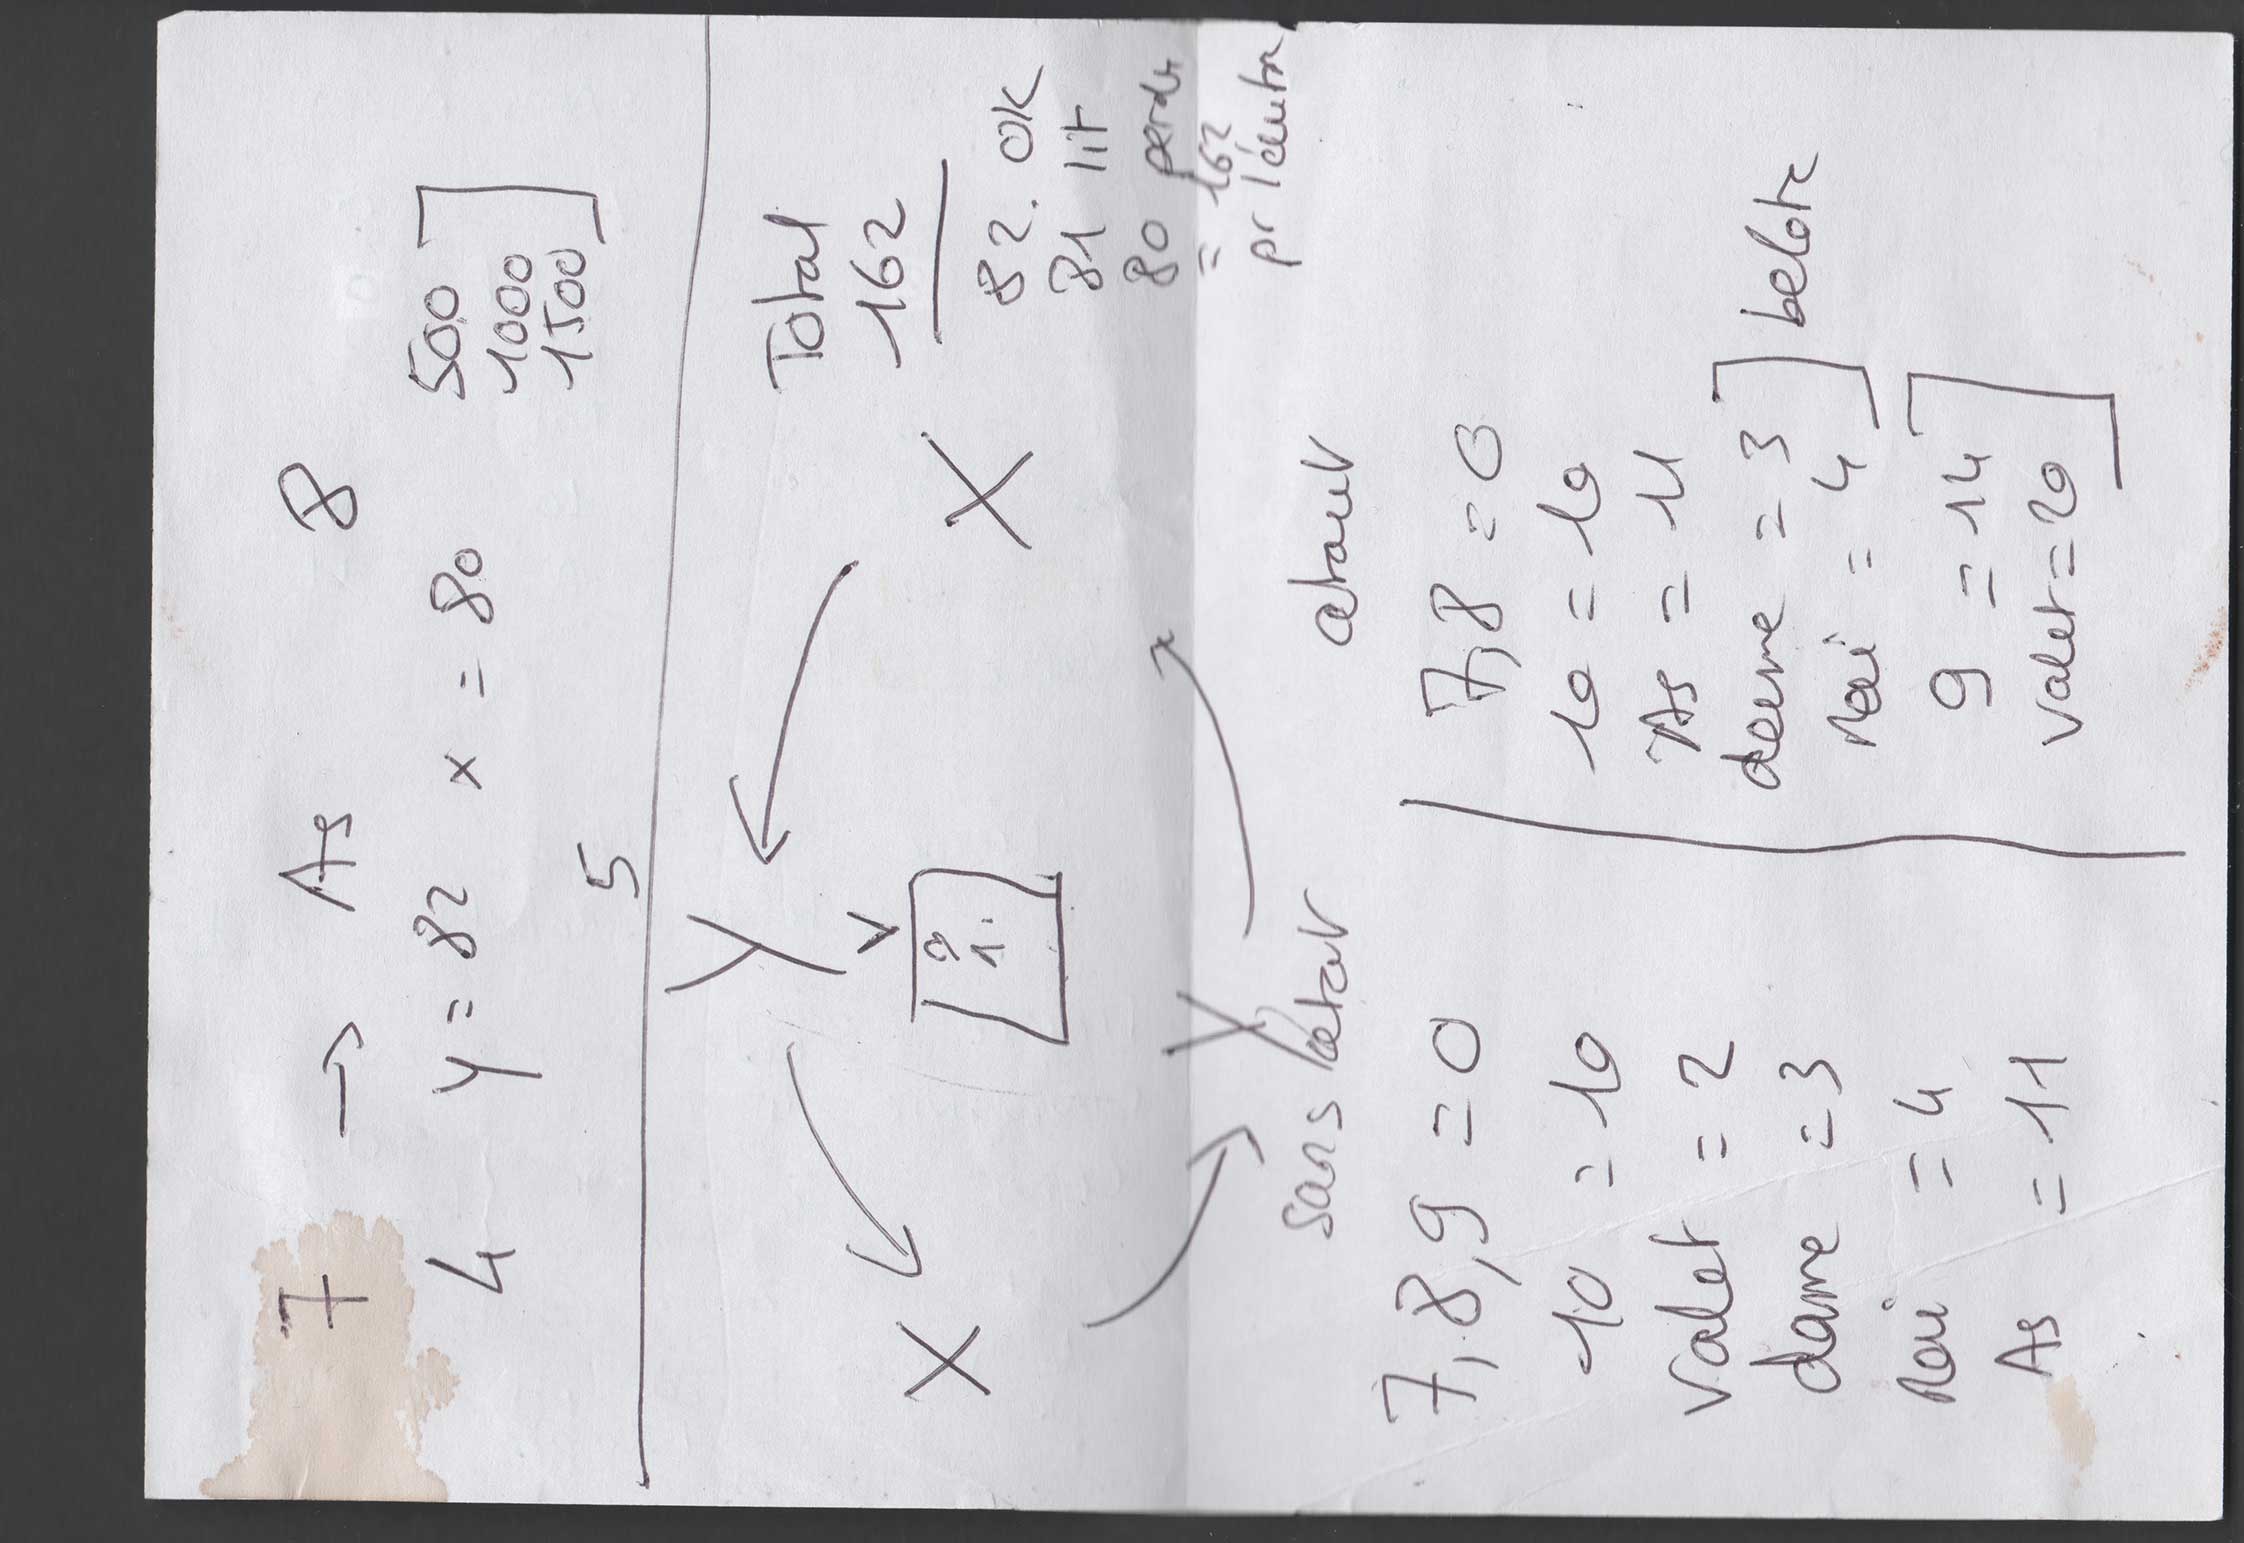 7 → As 8
4 y = 82 x = 80 500
1000
5 1500
Y
Total
162
V
X X
82. OK
81 lit
80 perdu
= 162
pr l'autre
Y
Sans l'atout atout
7, 8, 9 = 0 7, 8 = 0
10 = 10 10 = 10
Valet = 2 As = 11
dame = 3 dame = 3 belote
Roi = 4 Roi = 4
As = 11 9 = 14
valet = 20